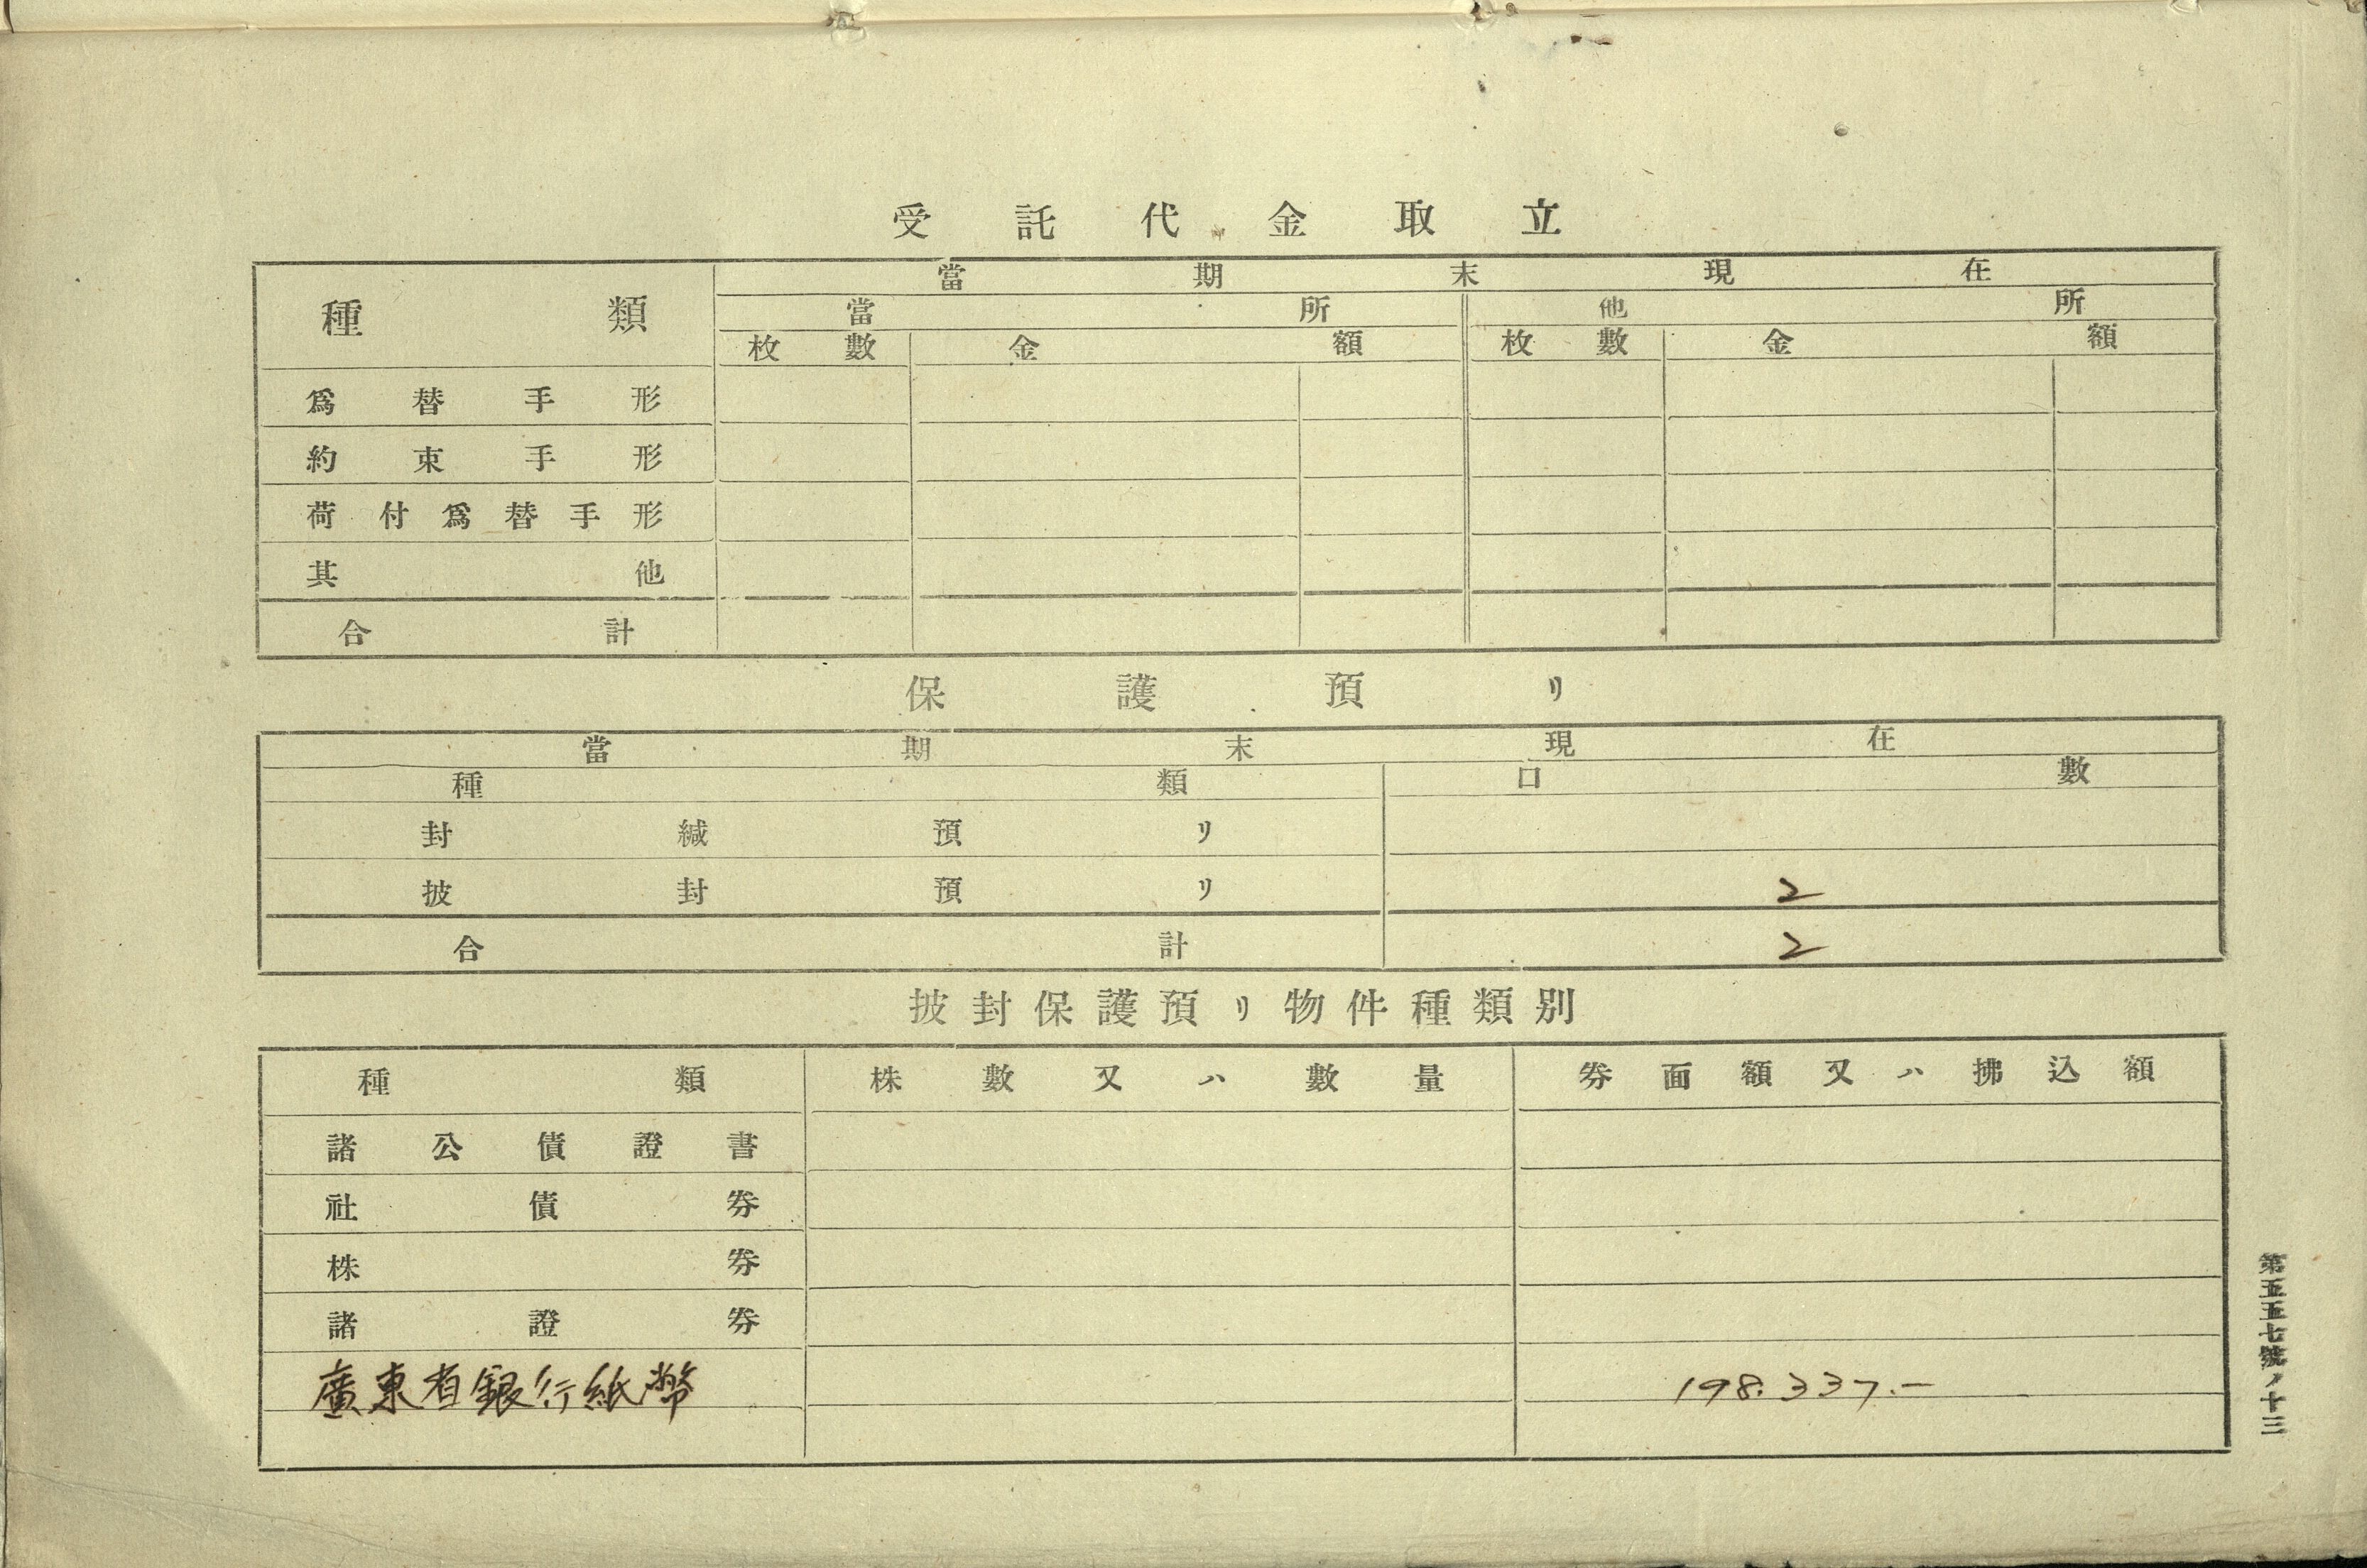 受託代金取立
種類 當期末現在
當所 他所
枚數 金額 枚數 金額
爲替手形
約束手形
荷付爲替手形
其他
合計
保護預リ
當期末現在
種類 口數
封緘預リ
披封預リ 2
合計 2
披封保護預リ物件種類別
種類 株數又ハ數量 券面額又ハ拂込額
諸公債證書
社債券
株券
諸證券
廣東省銀行紙幣 198.337.—
第五五七號ノ十三